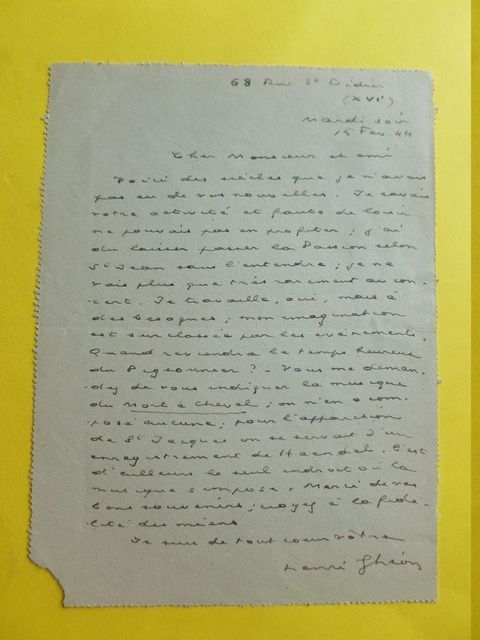 68 Rue St Didier
(XVIe)
Mardi soir
15 Fev. 44
Cher Monsieur et ami
Voici des siècles que je n'avais
pas eu de vos nouvelles. Je savais
votre activité et faute de loisir
ne pouvais pas en profiter ; j'ai
du laisser passer la Passion selon
St Jean sans l'entendre ; je ne
vais plus que très rarement au con-
cert. Je travaille, oui, mais à
des besognes ; mon imagination
est surclassée par les evénements.
Quand reviendra le temps heureux
du Pigeonnier ? - Vous me deman-
dez de vous indiquer la musique
du Mort à Cheval ; on n'en a com-
posé aucune ; pour l'apparition
de St Jacques on se servait d'un
enregistrement de Haendel. C'est
d'ailleurs le seul endroit où la
musique s'impose. Merci de vos
bons souvenirs ; croyez à la fidé-
lité des miens
Je suis de tout coeur vôtre
Henri Ghéon